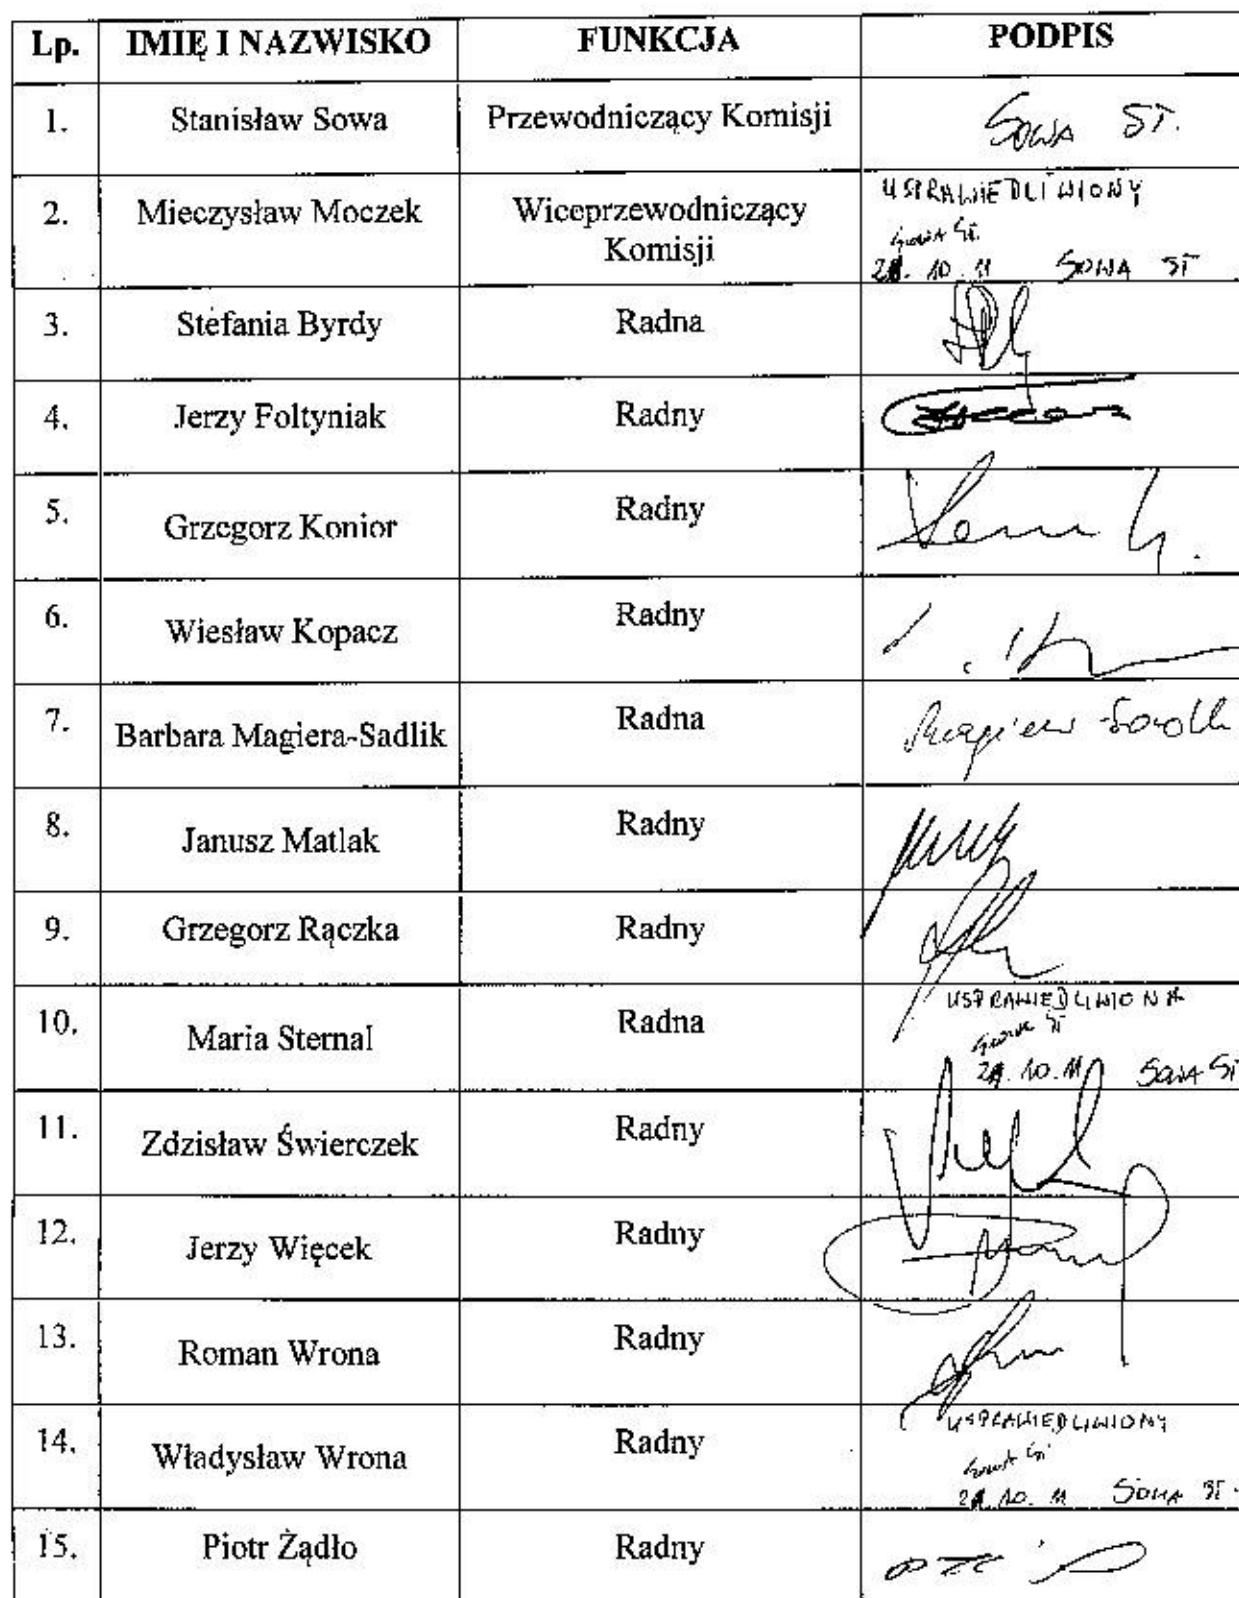 Lp. IMIĘ I NAZWISKO FUNKCJA PODPIS
1. Stanisław Sowa Przewodniczący Komisji SOWA ST.
2. Mieczysław Moczek Wiceprzewodniczący Komisji USPRAWIEDLIWIONY
SOWA ST
3. Stefania Byrdy Radna
4. Jerzy Foltyniak Radny
5. Grzegorz Konior Radny
6. Wiesław Kopacz Radny
7. Barbara Magiera-Sadlik Radna
8. Janusz Matlak Radny
9. Grzegorz Rączka Radny
10. Maria Sternal Radna USPRAWIEDLIWIONA
SOWA ST
11. Zdzisław Świerczek Radny
12. Jerzy Więcek Radny
13. Roman Wrona Radny
14. Władysław Wrona Radny USPRAWIEDLIWIONY
SOWA ST.
15. Piotr Żądło Radny